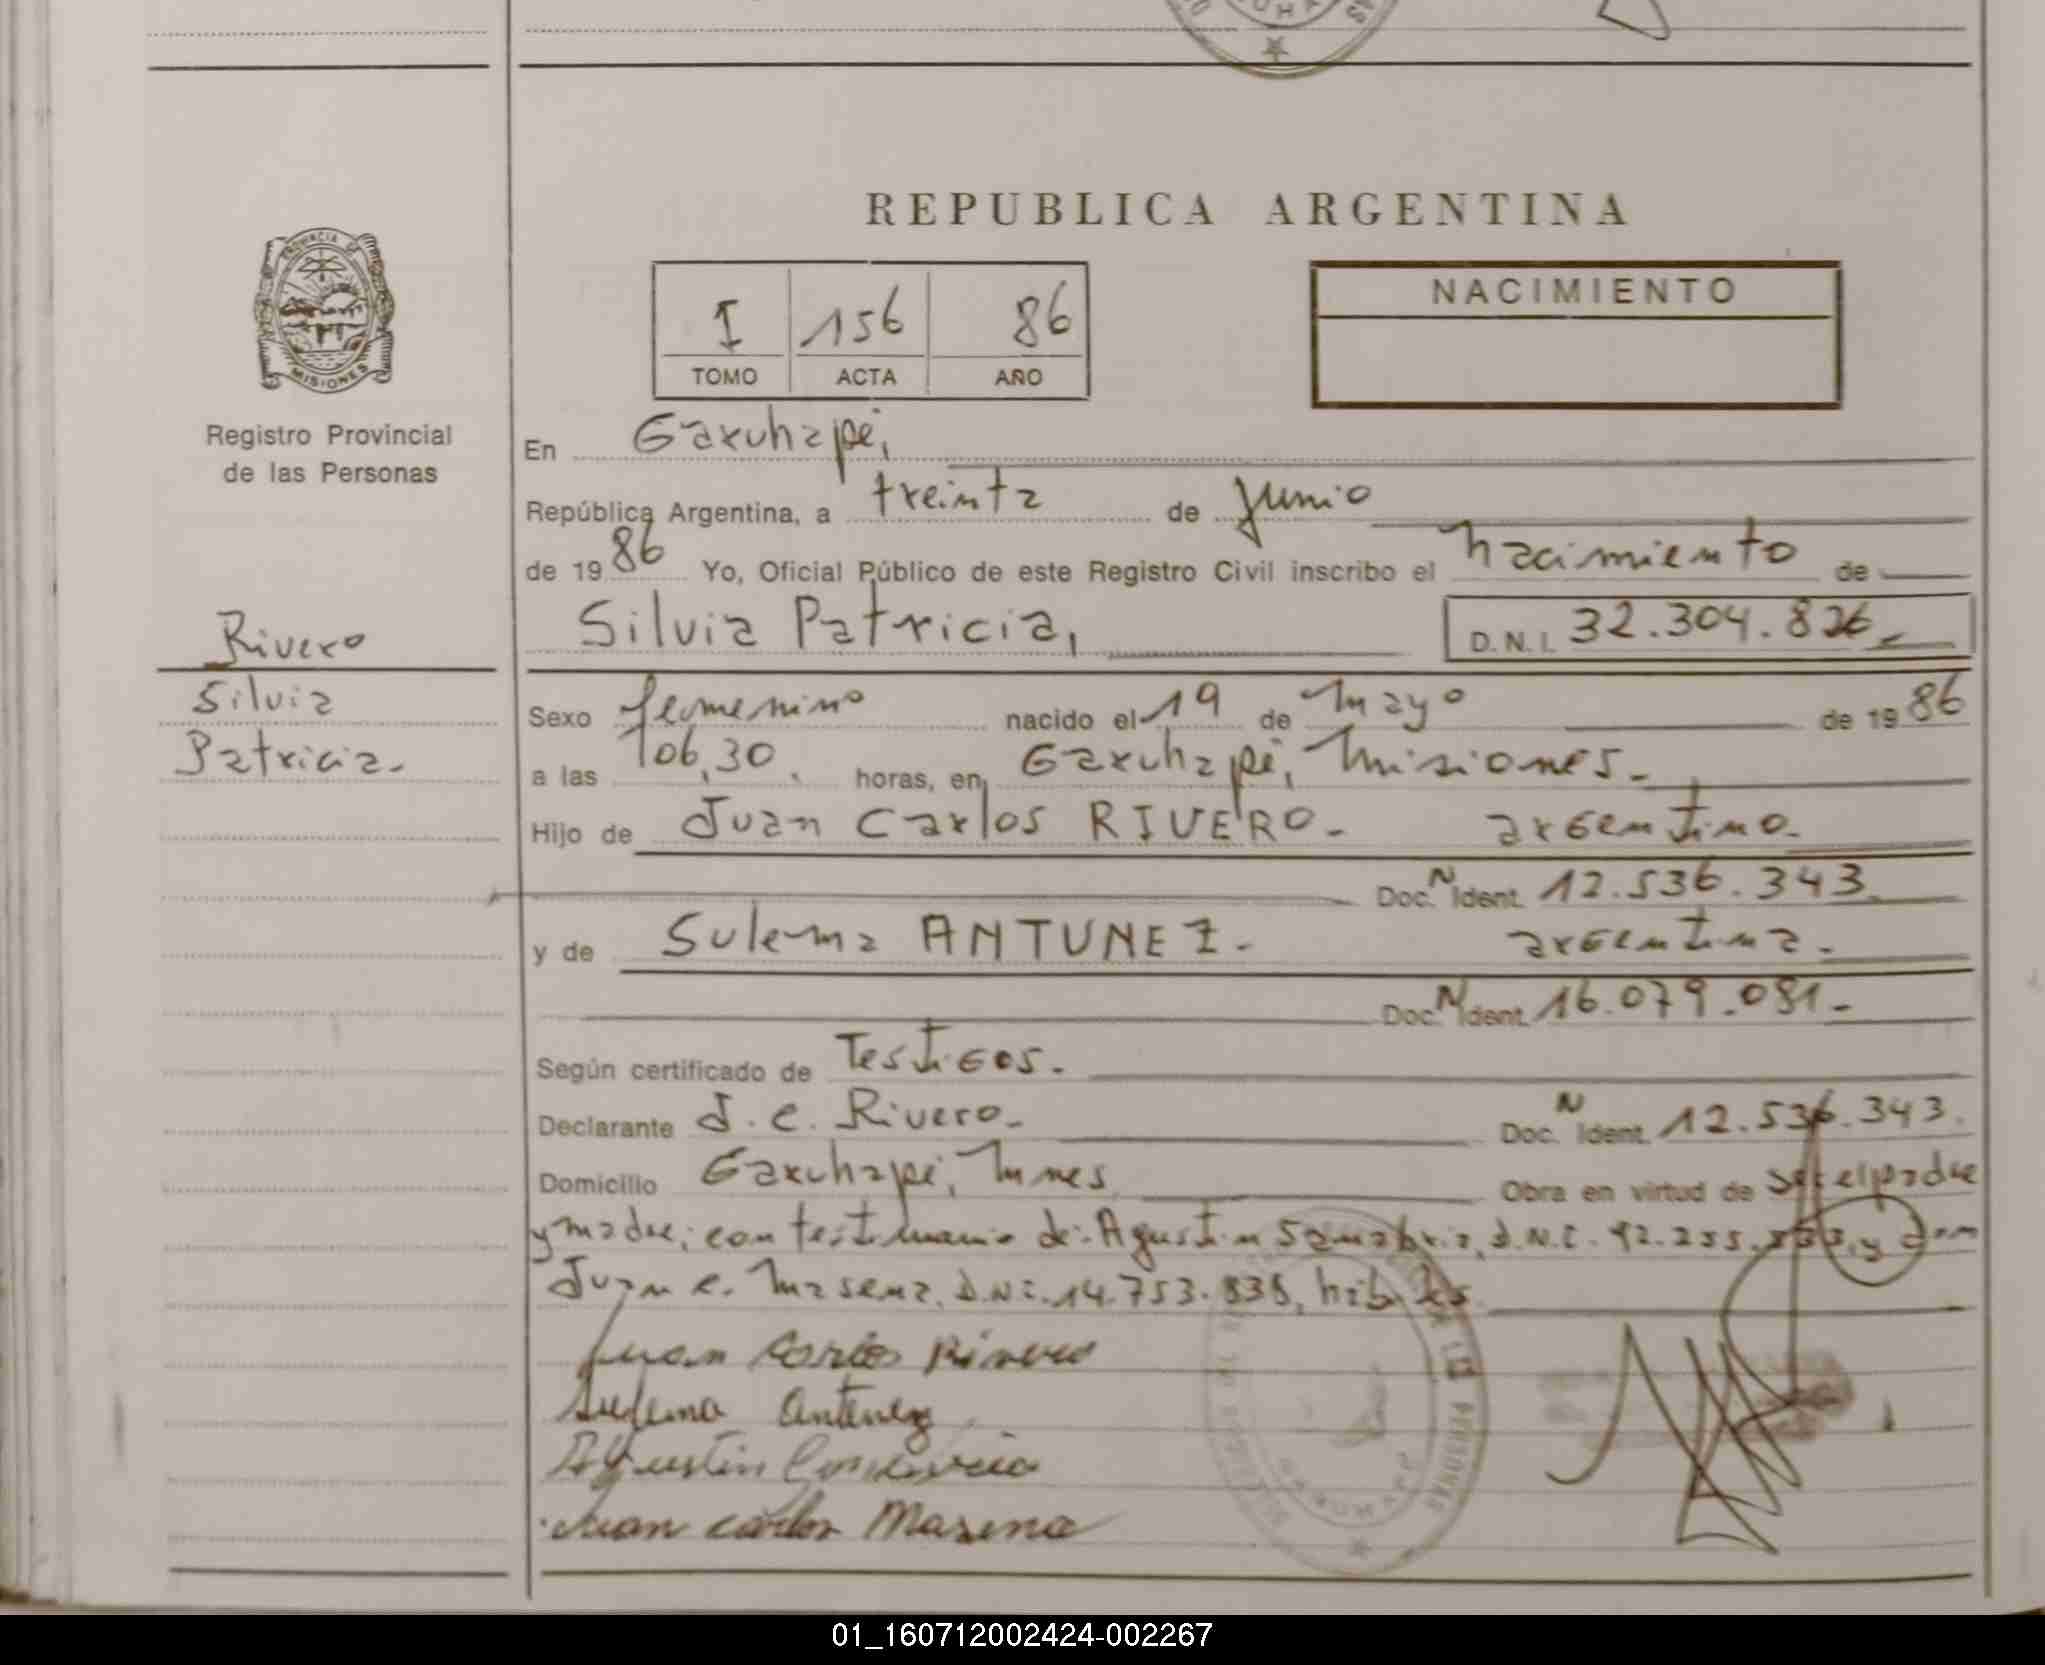 REPUBLICA ARGENTINA
PROVINCIA DE
MISIONES
Registro Provincial
de las Personas
I 156 86
TOMO ACTA AÑO
NACIMIENTO
En Garuhapé,
República Argentina, a treinta de junio
de 19 86 Yo, Oficial Público de este Registro Civil inscribo el nacimiento de
Silvia Patricia, D.N.I. 32.304.826
Rivero
Silvia
Patricia.
Sexo femenino nacido el 19 de mayo de 19 86
a las 06,30 horas, en Garuhapé, Misiones.
Hijo de Juan Carlos RIVERO. argentino.
Doc. N Ident. 12.536.343
y de Sulema ANTUNEZ. argentina.
Doc. N Ident. 16.079.081.
Según certificado de Testigos.
Declarante J. C. Rivero. Doc. N Ident. 12.536.343.
Domicilio Garuhapé, Mnes Obra en virtud de ser el padre
y madre; con testimonio de: Agustin Sanabria, D.N.I. y don
Juan C. Masena, D.N.I. 14.753.838, hábiles.
Juan Carlos Rivero
Sulema Antunez
Agustin
Juan Carlos Masena
PERSONAS
01_160712002424-002267